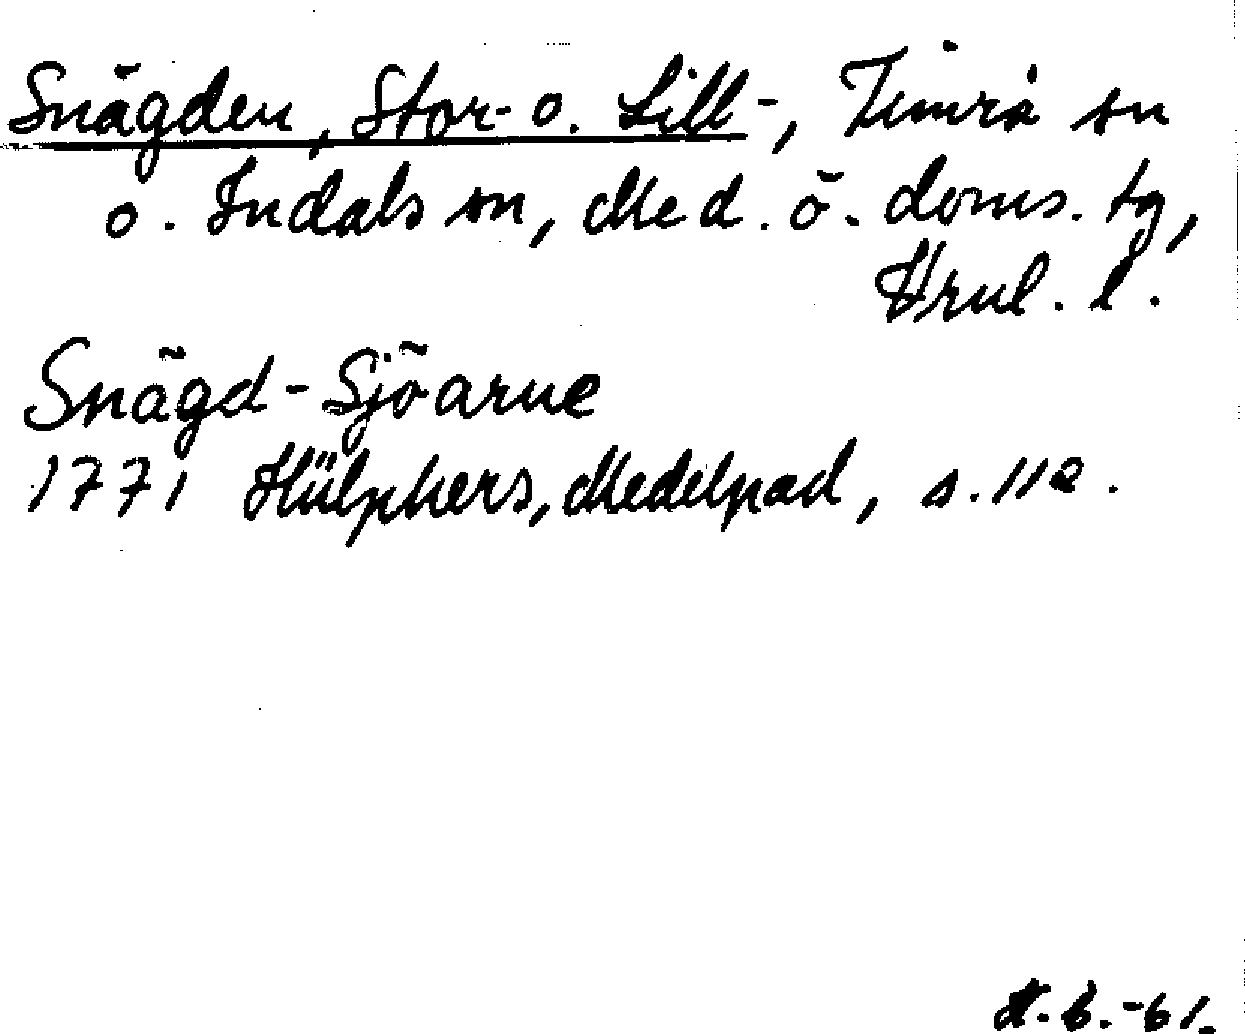 Snägden, Stor- o. Lill-, Timrå sn
o. Indals sn, Med. ö. doms. tg,
Vrnl. l.
Snägd-Sjöarne
1771 Hülphers, Medelpad, s. 112.
H.B.-61.